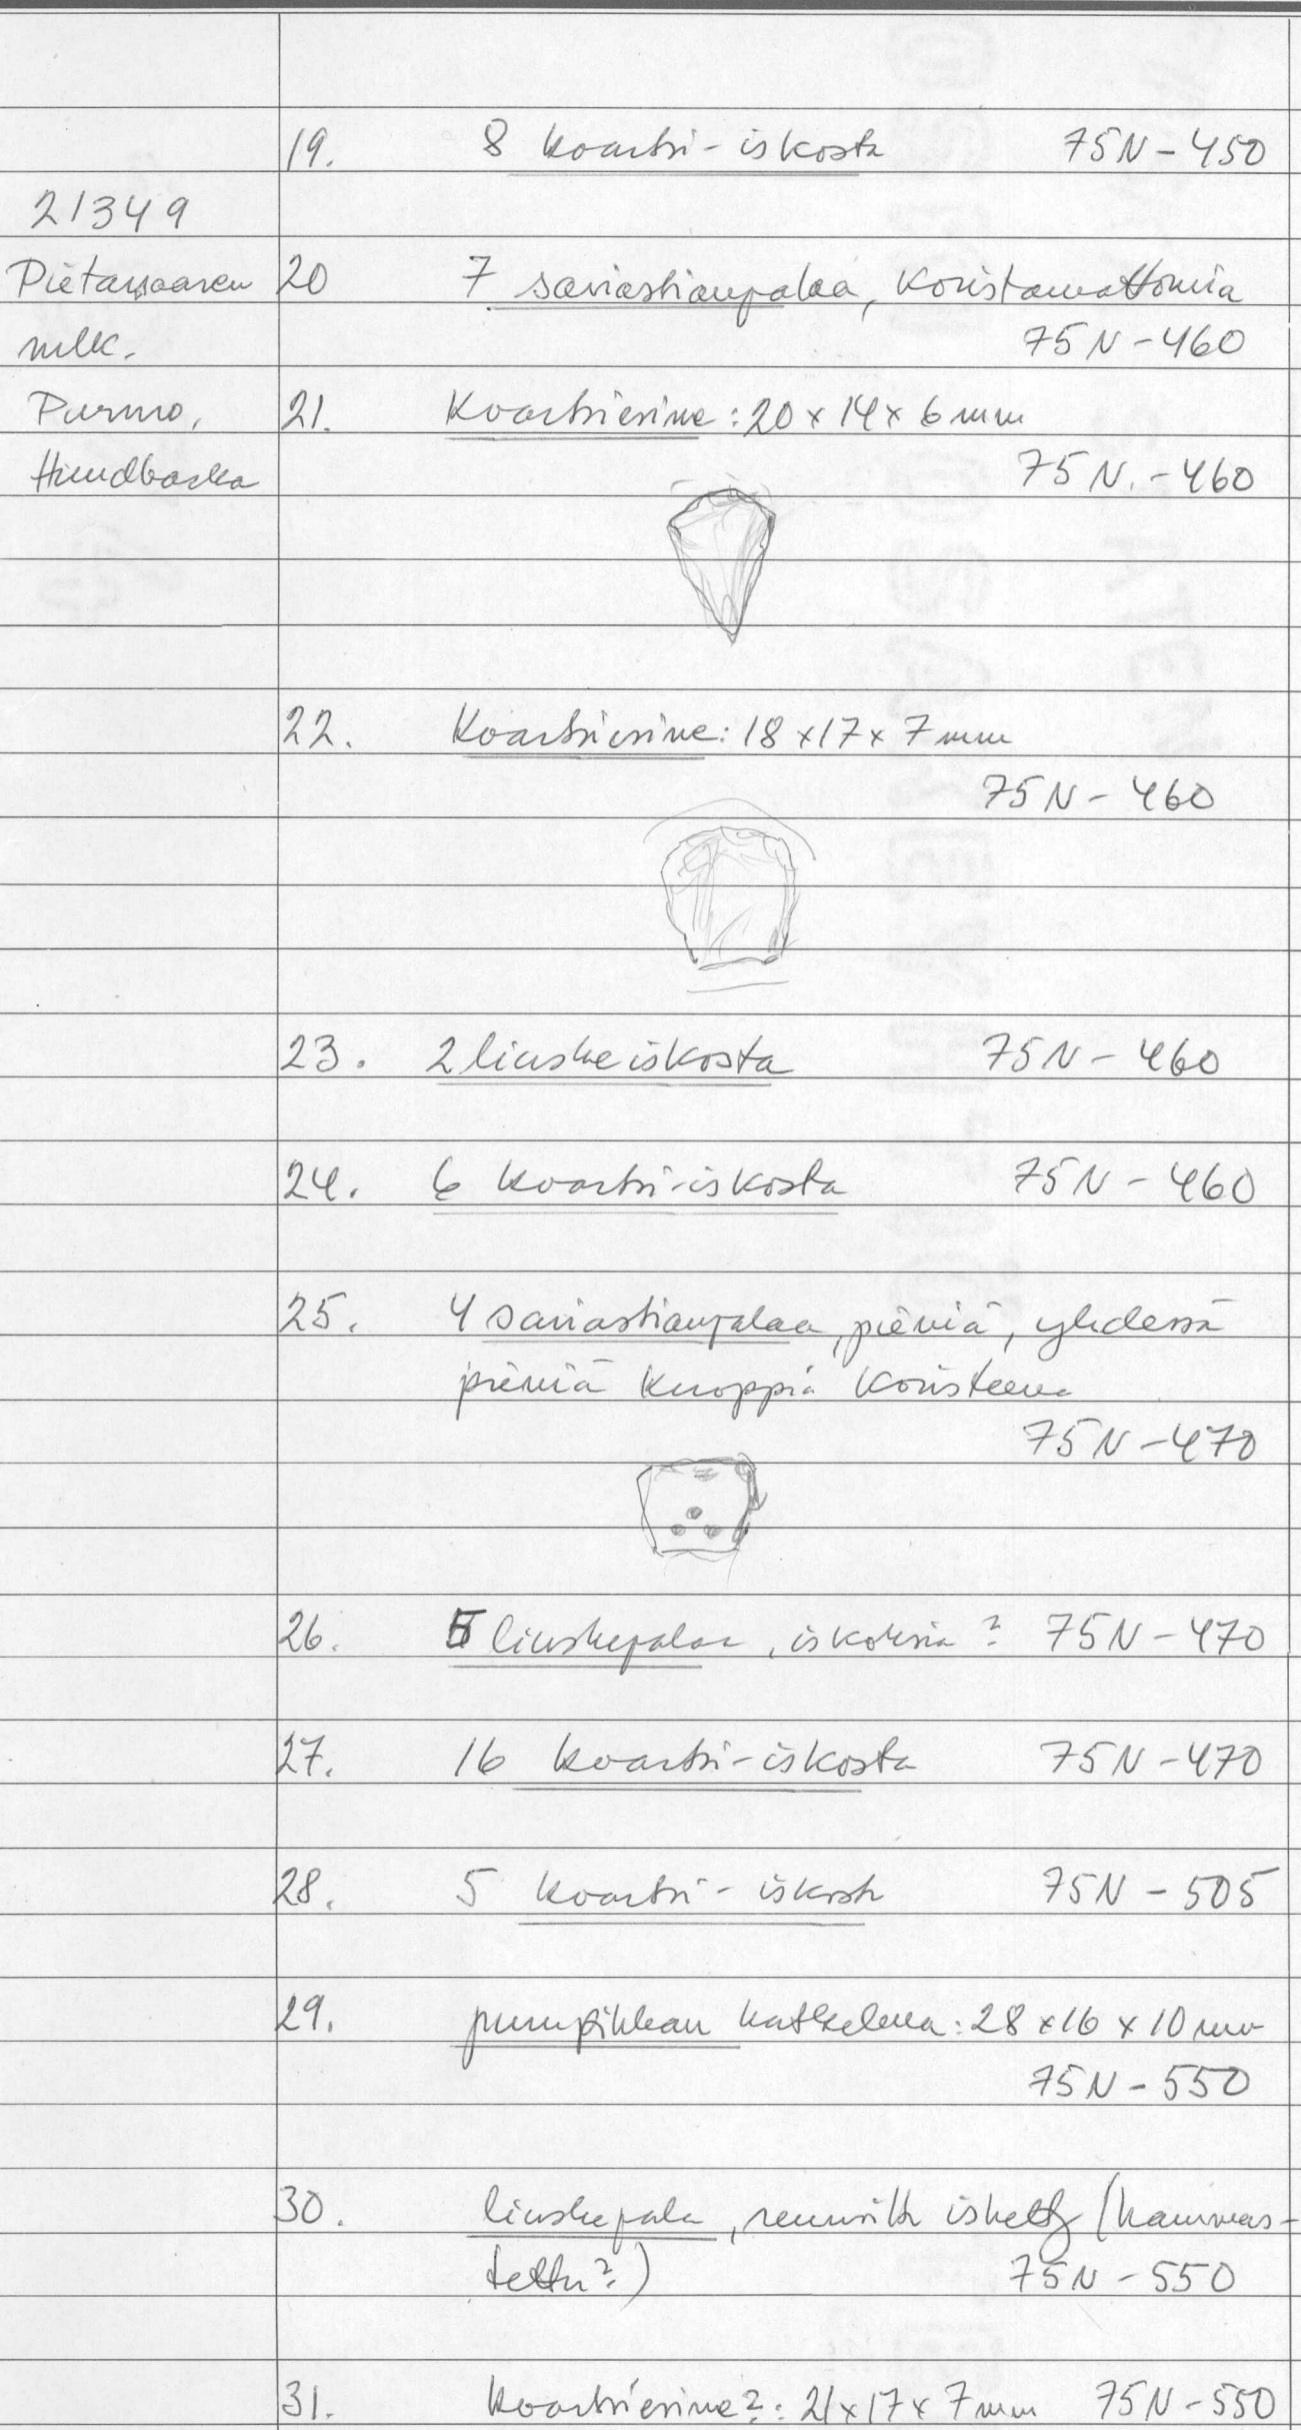 19. 8 kvartsi-iskosta 75N-450
21349
Pietarsaaren 20 7 saviastianpalaa, koristamattomia
mlk. 75N-460
Purmo, 21. Kvartsiesine: 20x14x6mm
Hundbacka 75N.-460
22. Kvartsiesine: 18x17x7mm
75N-460
23. 2 liuskeiskosta 75N-460
24. 6 kvartsi-iskosta 75N-460
25. 4 saviastianpalaa, pieniä, yhdessä
pieniä kuoppia koristeena
75N-470
26. 5 liuskepalaa, iskoksia? 75N-470
27. 16 kvartsi-iskosta 75N-470
28. 5 kvartsi-iskosta 75N-505
29. katkelma: 28x16x10mm
75N-550
30. liuskepala, reunoilta isketty (hammas-
tettu?) 75N-550
31. kvartsiesine?: 21x17x7mm 75N-550